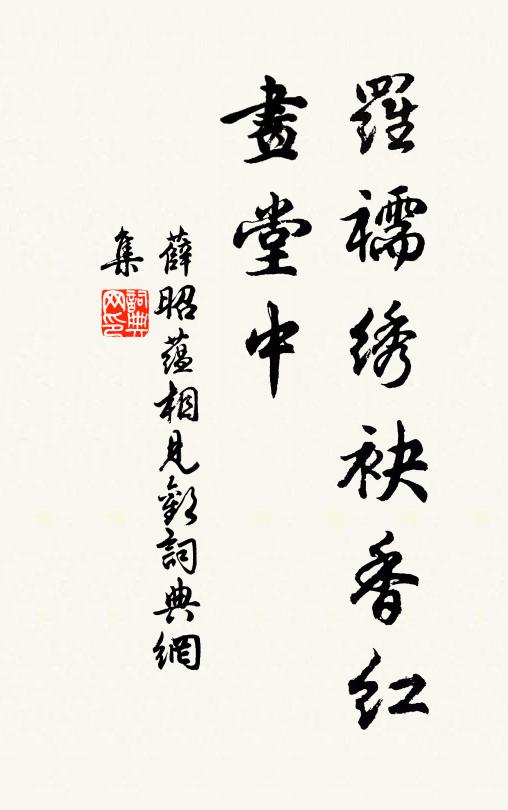 羅襦绣袂香红
畫堂中
薛昭蕴相見歡詞典網
集
詞典网印